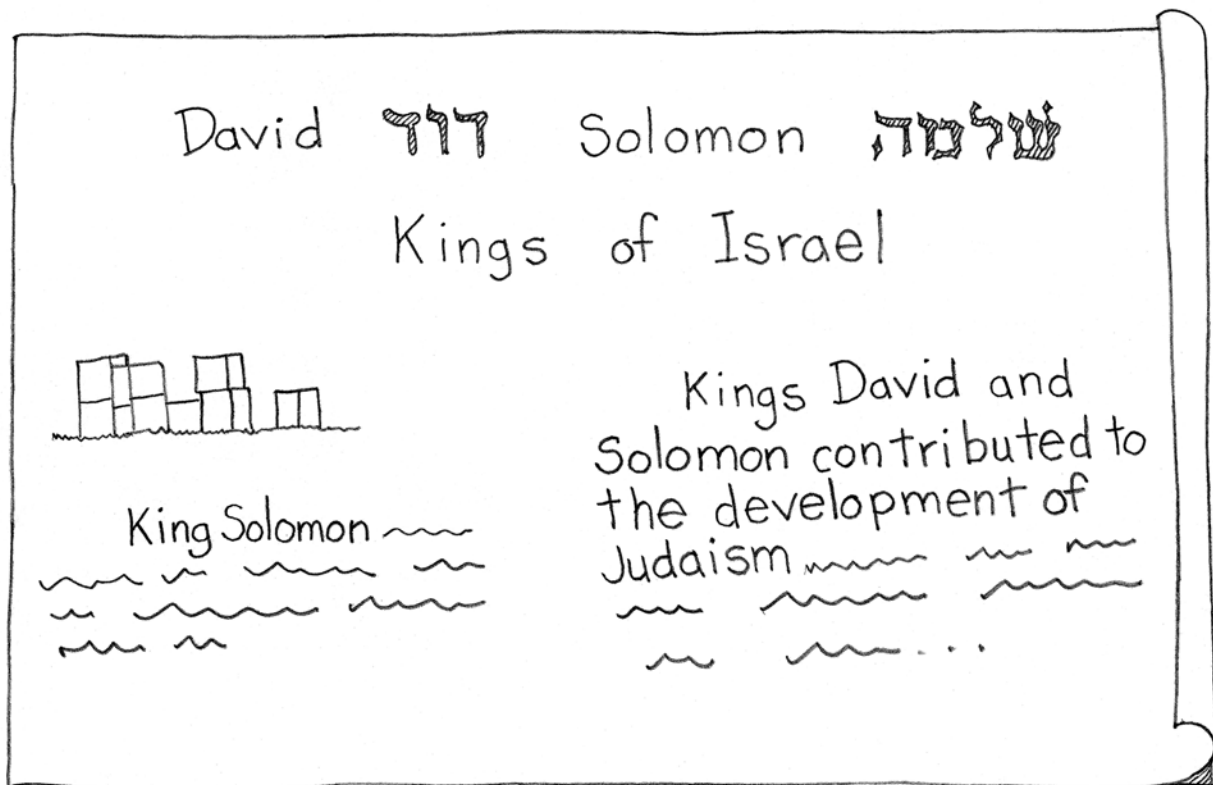 David דוד Solomon שלמה
Kings of Israel
King Solomon
Kings David and
Solomon contributed to
the development of
Judaism
...